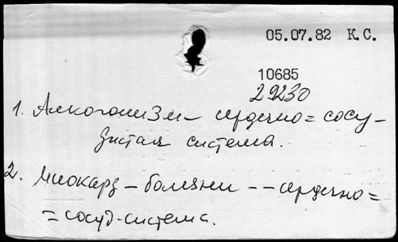 05.07.82 К.С.
10685
29230
1. Алкоголизм – сердечно = сосу-
дистая система.
2. Миокард – болезни -- сердечно =
= сосуд-система.